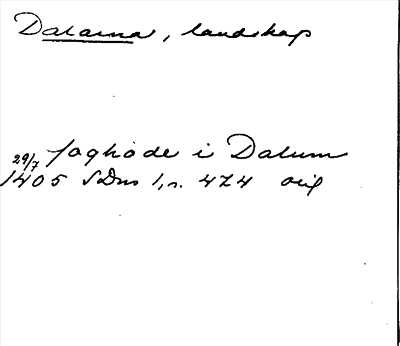 Dalarna, landskap
29/7 foghode i Dalum
1405 SDns 1, n. 474 orig